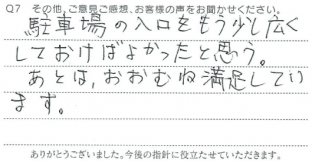 Q7 その他、ご意見ご感想、お客様の声をお聞かせください。
駐車場の入口をもう少し広く
しておけばよかったと思う。
あとは、おおむね満足してい
ます。
ありがとうございました。今後の指針に役立たせていただきます。